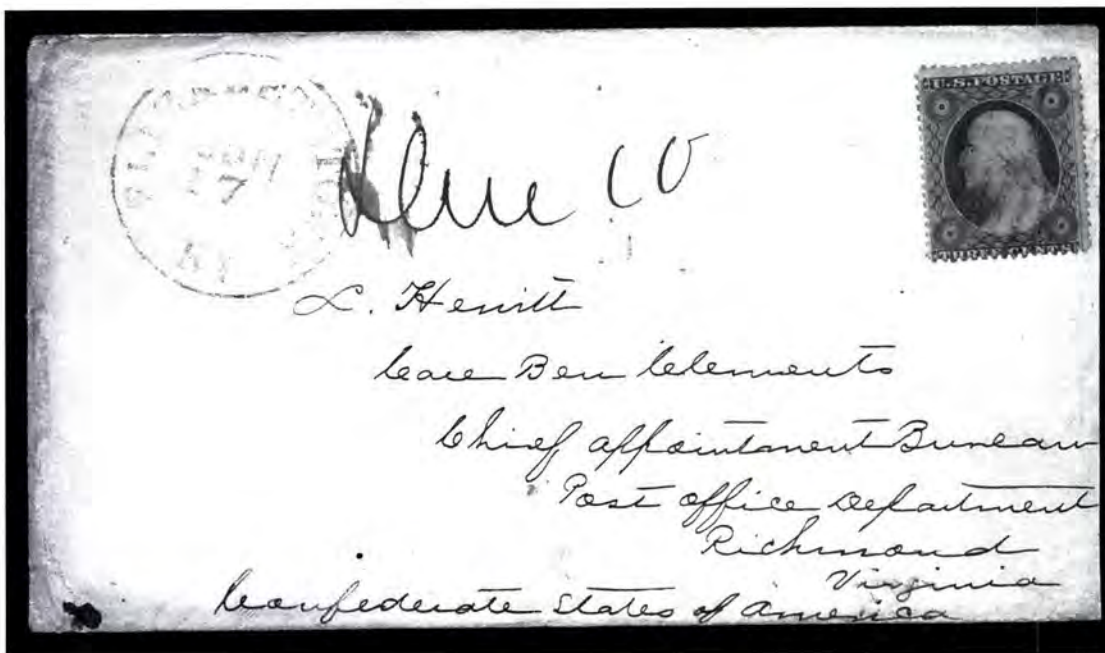 JUN
7
KY
Due 10
U.S. POSTAGE
THREE CENTS
L. Hewitt
Care Ben Clements
Chief appointment Bureau
Post office Department
Richmond
Virginia
Confederate States of America